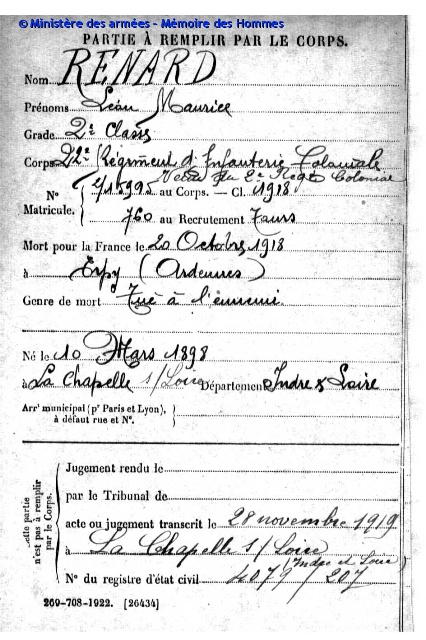 © Ministère des armées - Mémoire des Hommes
PARTIE À REMPLIR PAR LE CORPS.
Nom RENARD
Prénoms Léon Maurice
Grade 2e Classe
Corps 22e Régiment d'Infanterie Coloniale
du 2e Regt Colonial
N° Matricule. { au Corps. — Cl. 1918
760 au Recrutement Tours
Mort pour la France le 20 Octobre 1918
à (Ardennes)
Genre de mort Tué à l'ennemi
Né le 10 Mars 1898
à La Chapelle s/Loire Département Indre & Loire
Arrt municipal (pr Paris et Lyon), à défaut rue et N°. }
Cette partie n'est pas à remplir par le Corps.
Jugement rendu le
par le Tribunal de
acte ou jugement transcrit le 28 novembre 1919
à La Chapelle s/ Loire
(Indre et Loire)
N° du registre d'état civil 4079 / 207
269-708-1922. [26434]